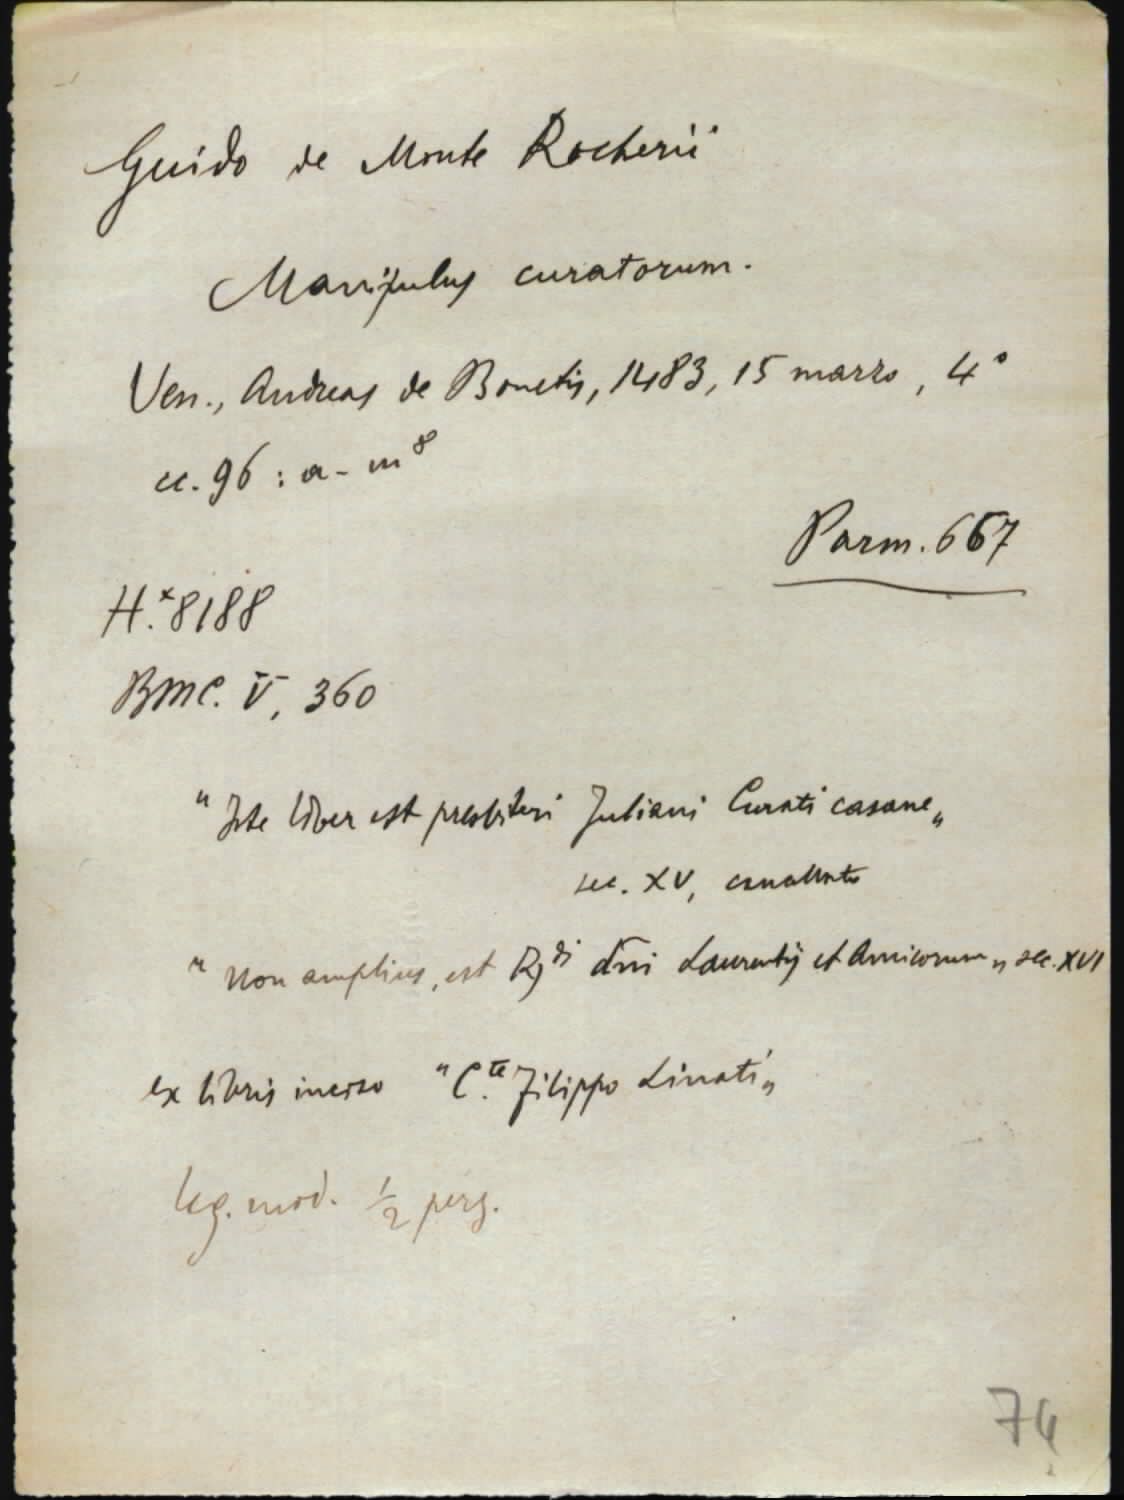 Guido de Monte Rocherii
Manipulus curatorum.
Ven., Andreas de Bonetis, 1483, 15 marzo, 4°
cc. 96 : a - m⁸
Parm. 667
H.*8188
BMC. V, 360
"Iste liber est presbiteri Juliani Curati casane„
sec. XV, cancellato
"Non amplius, est R.di dñi Laurentij et Amicorum„ sec. XVI
ex libris inciso "C.te Filippo Linati„
leg. mod. ½ perg.
74